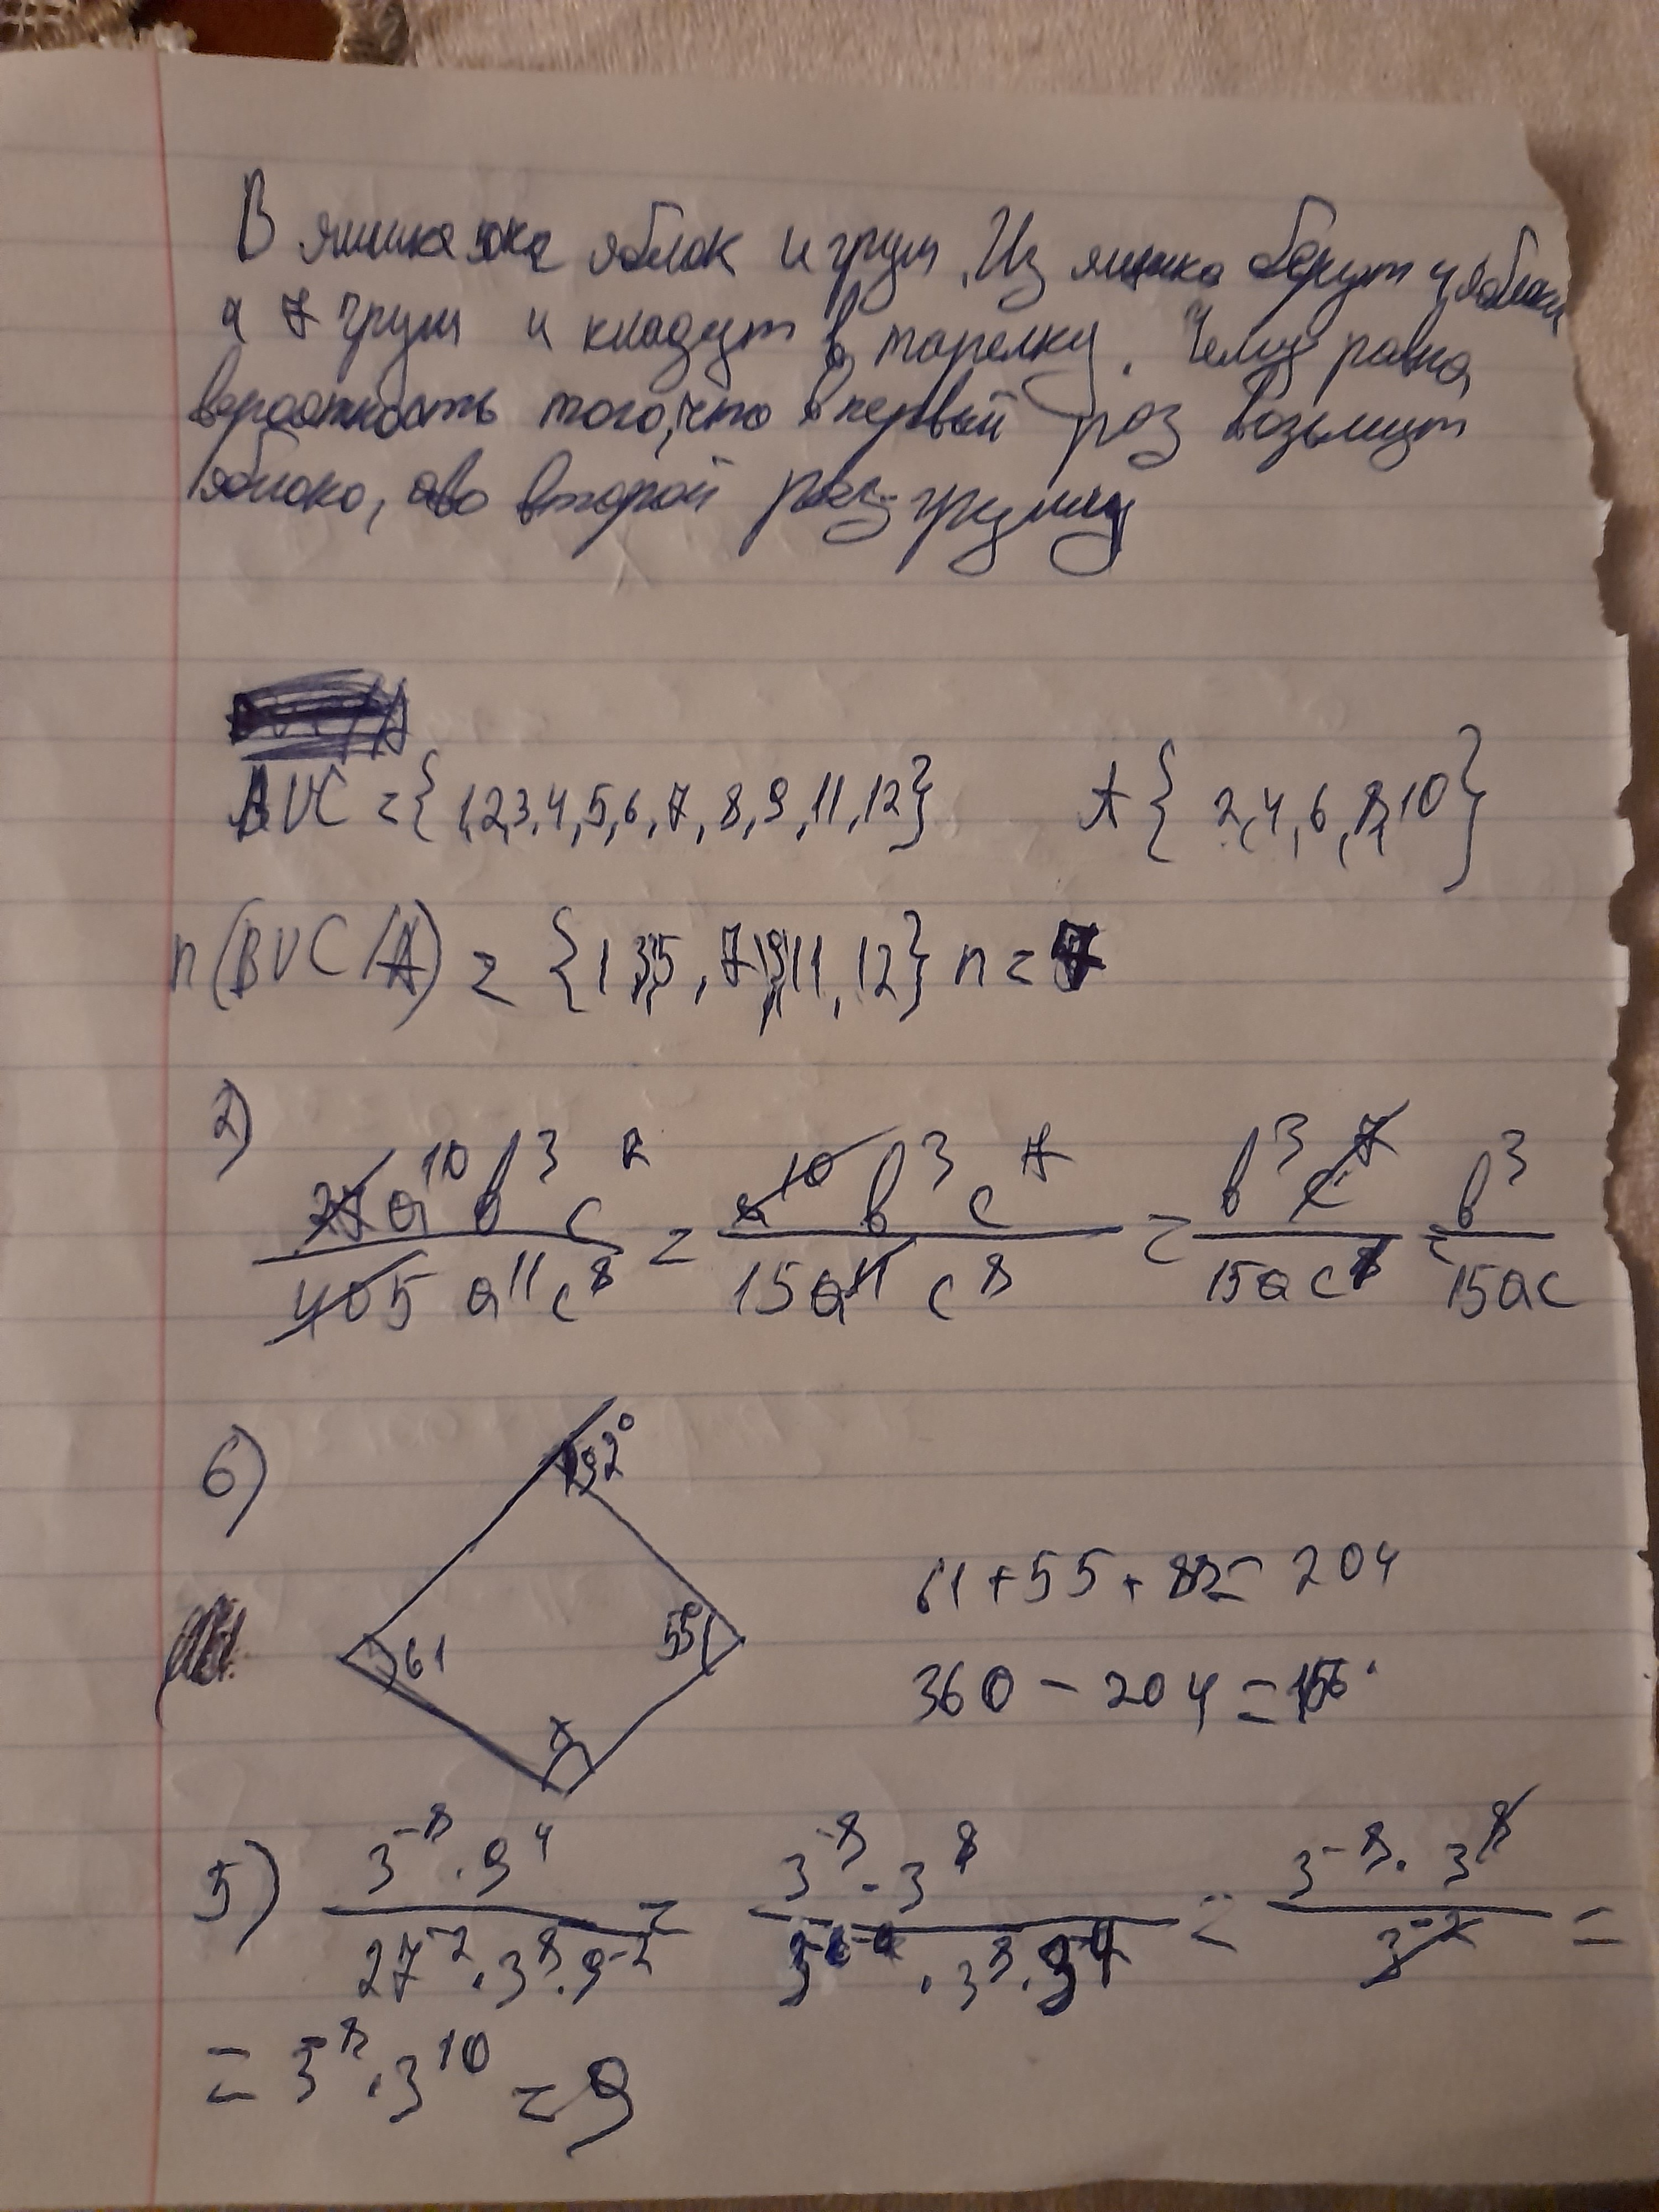 В яблок и груш. Из ящика берут 4 яблока
и 7 груш и кладут в тарелку. Чему равна
вероятность того, что в первый раз возьмут
яблоко, а во второй раз-грушу
BUC = {1,2,3,4,5,6,7,8,9,11,12} A{2,4,6,8,10}
n(BUC/A) = {1,3,5,7,9,11,12} n = 7
2)
27a¹⁰b³c⁷/405a¹¹c⁸ = a¹⁰b³c⁷/15a¹¹c⁸ = b³c⁷/15ac⁸ = b³/15ac
6)
92°
61 55°
x
61 + 55 + 88 = 204
360 - 204 = 156°
5) 3⁻⁸·9⁴/27⁻²·3⁸·9⁻² = 3⁻⁸·3⁸/3⁻⁶·3⁸·3⁻⁴ = 3⁻⁸·3⁸/3⁻² =
= 3⁻⁸·3¹⁰ = 9